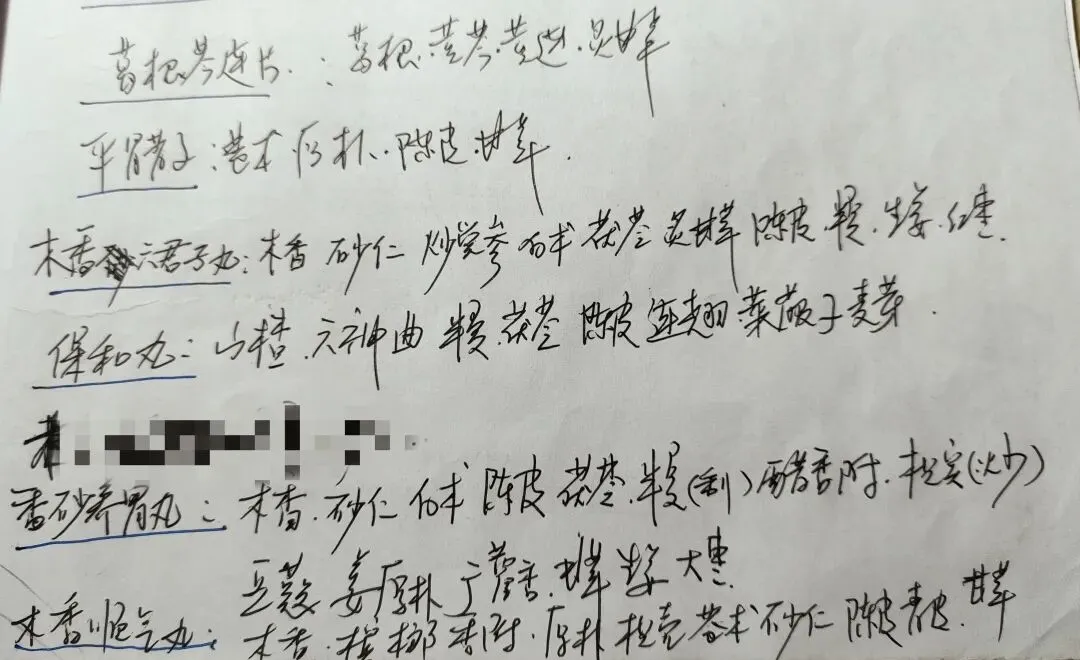 葛根芩连片：葛根.黄芩.黄连.炙甘草
平胃散子：苍术.厚朴.陈皮.甘草.
木香六君子丸：木香 砂仁 炒党参 白术 茯苓 炙甘草 陈皮.半夏.生姜.红枣.
保和丸：山楂.六神曲 半夏.茯苓 陈皮 连翘 莱菔子 麦芽.
香砂养胃丸：木香.砂仁 白术 陈皮 茯苓.半夏(制)醋香附.枳实(炒)
豆蔻 姜厚朴 广藿香.甘草 生姜 大枣
木香顺气丸：木香.槟榔 香附.厚朴 枳壳 苍术 砂仁 陈皮 青皮.甘草